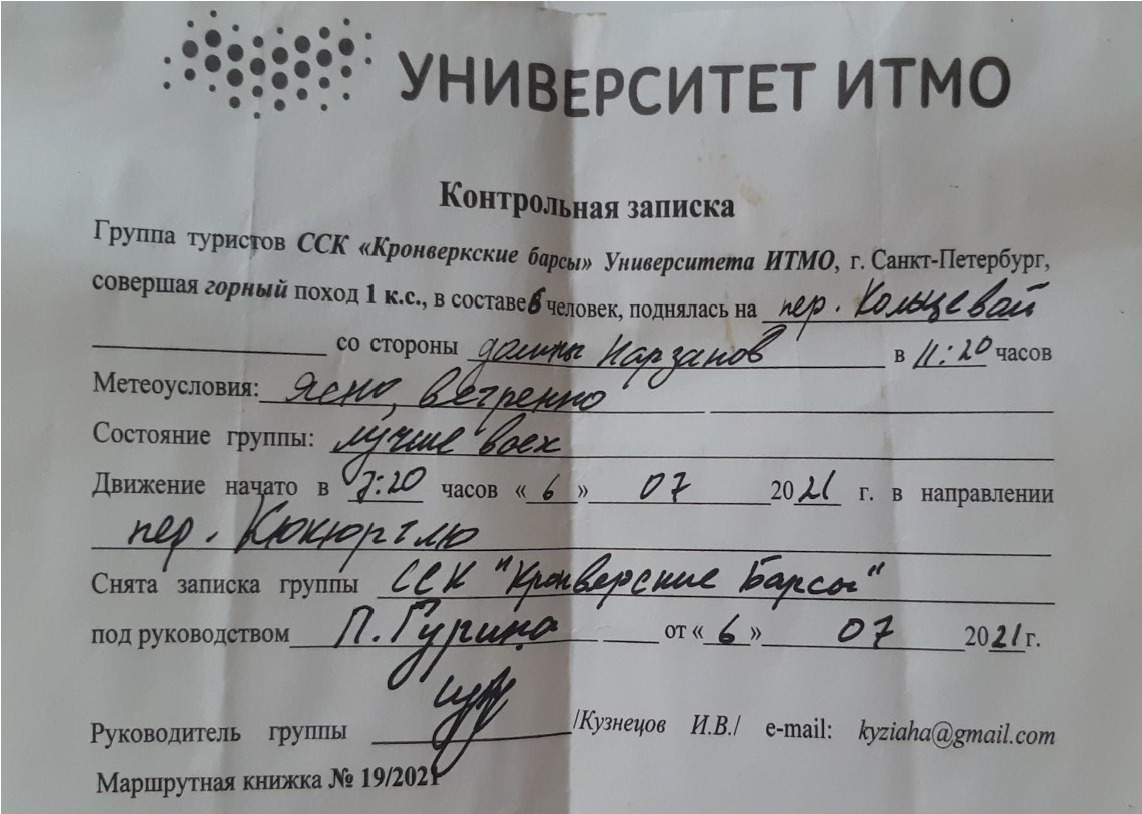 УНИВЕРСИТЕТ ИТМО
Контрольная записка
Группа туристов ССК «Кронверкские барсы» Университета ИТМО, г. Санкт-Петербург,
совершая горный поход 1 к.с., в составе 6 человек, поднялась на пер. Кольцевой
со стороны долины Нарзанов в 11:20 часов
Метеоусловия: Ясно, ветренно
Состояние группы: лучше всех
Движение начато в 7:20 часов «6» 07 2021 г. в направлении
пер. Кюкюртлю
Снята записка группы ССК "Кронверские Барсы"
под руководством П. Гурина от «6» 07 2021г.
Руководитель группы /Кузнецов И.В./ e-mail: kyziaha@gmail.com
Маршрутная книжка № 19/2021